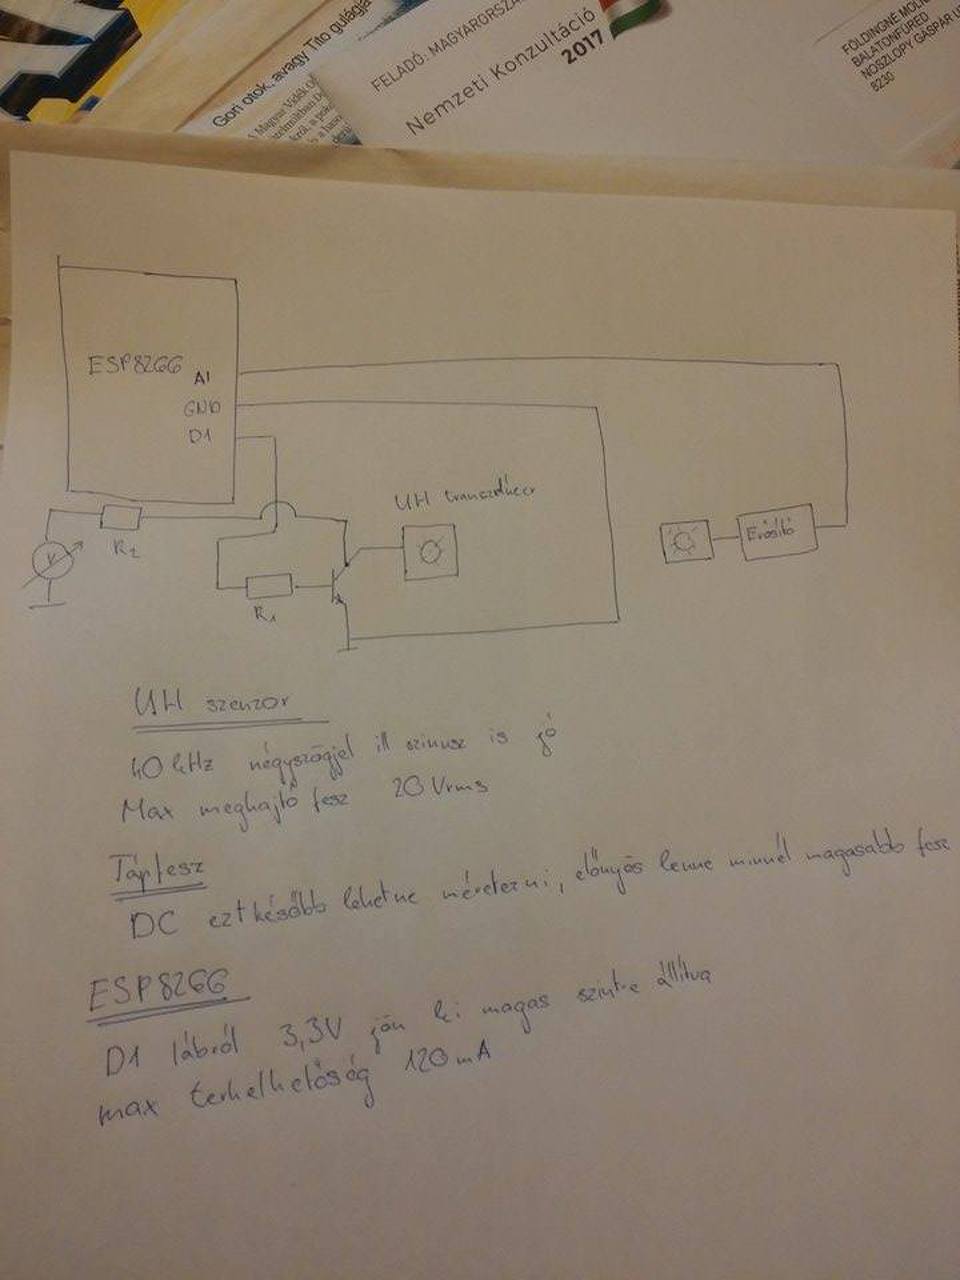 Gori otok, avagy Tito gulágja
FELADÓ: MAGYARORSZÁ
Nemzeti Konzultáció
2017
FÖLDINGNÉ MOLN
BALATONFÜRED
NOSZLOPY GÁSPÁR U
8230
ESP8266
A1
GND
D1
UH transzdúcer
Erősítő
V
R2
R1
UH szenzor
40 kHz négyszögjel ill szinusz is jó
Max meghajtó fesz 20 Vrms
Tápfesz
DC ezt később lehetne méretezni, előnyös lenne minnél magasabb fesz
ESP8266
D1 lábról 3,3V jön ki magas szintre állítva
max terhelhetőség 120 mA